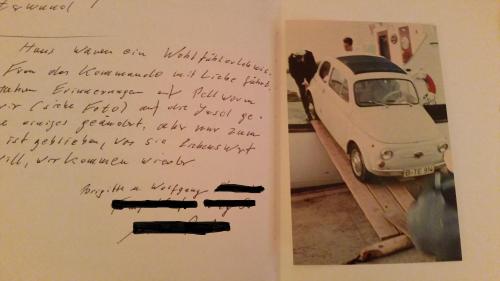 Haus waren ein Wohlfühlerlebnis.
Frau das Kommando mit Liebe führt.
Erinnerungen auf Pellworm
wir (siehe Foto) auf die Insel ge-
einiges geändert, aber nur zum
ist geblieben, was sie liebenswert
will, wir kommen wieder
Brigitte u. Wolfgang
B·TE 914